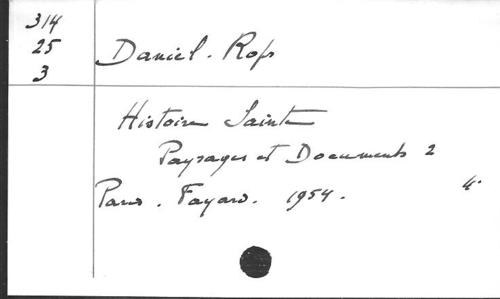 314
25
3
Daniel-Rops
Histoire Sainte
Paysages et Documents 2
Paris. Fayard. 1954.
4°